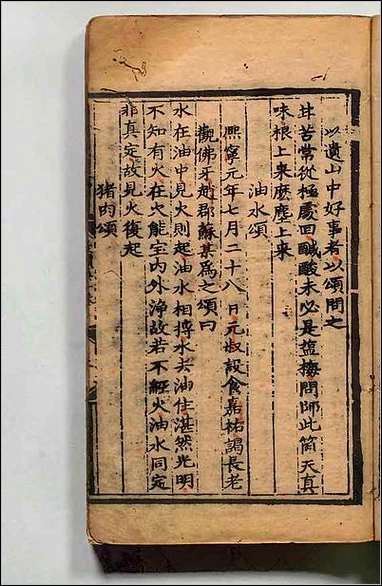 以遺山中好事者以頌問之
甘苦常從極處回醎酸未必是塩梅問師此箇天真
味根上来麽塵上来
油水頌
熈寧元年七月二十八日元叔設食嘉祐謁長老
觀佛牙趙郡蘇某為之頌曰
水在油中見火則起油水相搏水去油住湛然光明
不知有火在火能定内外淨故若不經火油水同定
非真定故見火復起
猪肉頌